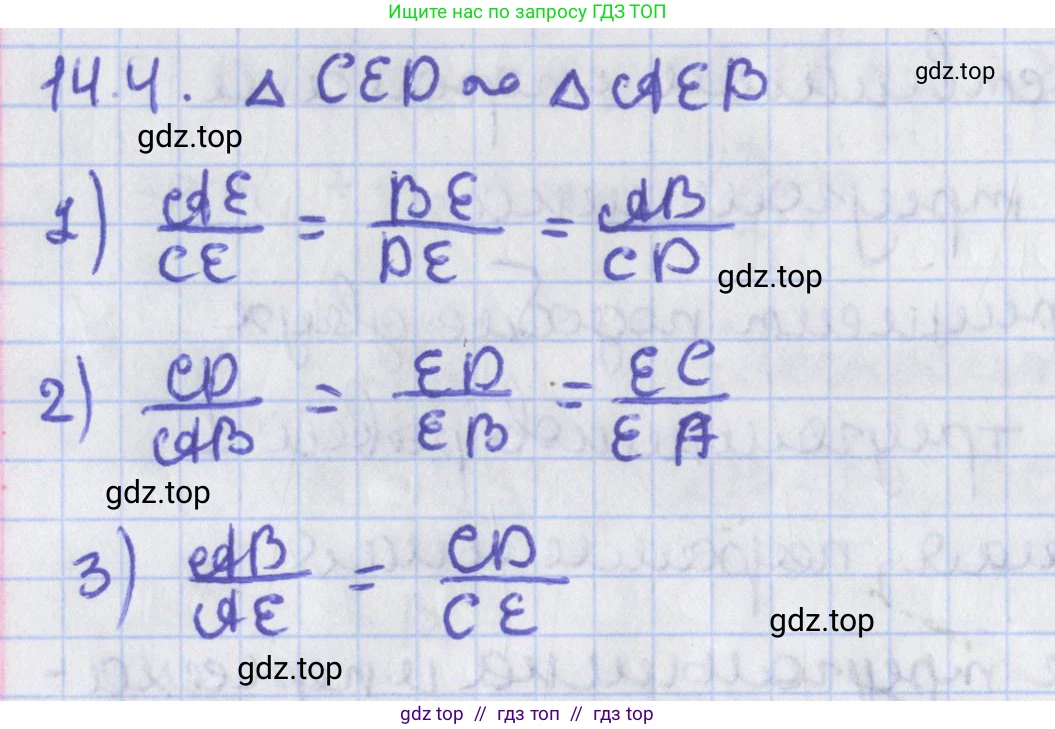 Ищите нас по запросу ГДЗ ТОП
14.4. △ CED ∾ △ AEB
gdz.top
gdz.top
1) AE/CE = BE/DE = AB/CD
gdz.top
2) CD/AB = ED/EB = EC/EA
gdz.top
3) AB/AE = CD/CE
gdz.top
gdz.top
gdz top // гдз топ // гдз top